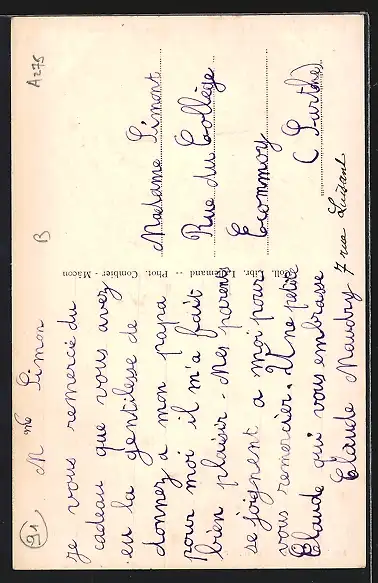 91
Mme Simon
je vous remercie du
cadeau que vous avez
eu la gentilesse de
donnez a mon papa
pour moi il m'a fait
bien plaisir - Mes parents
se joignent a moi pour
vous remercier. Une petite
Claude qui vous embrasse
Claude Naudry 7 rue
Coll. Libr. L'Allemand -- Phot. Combier - Mâcon
B
A275
Madame Simont
Rue du Collège
Ecommoy
(Sarthe)